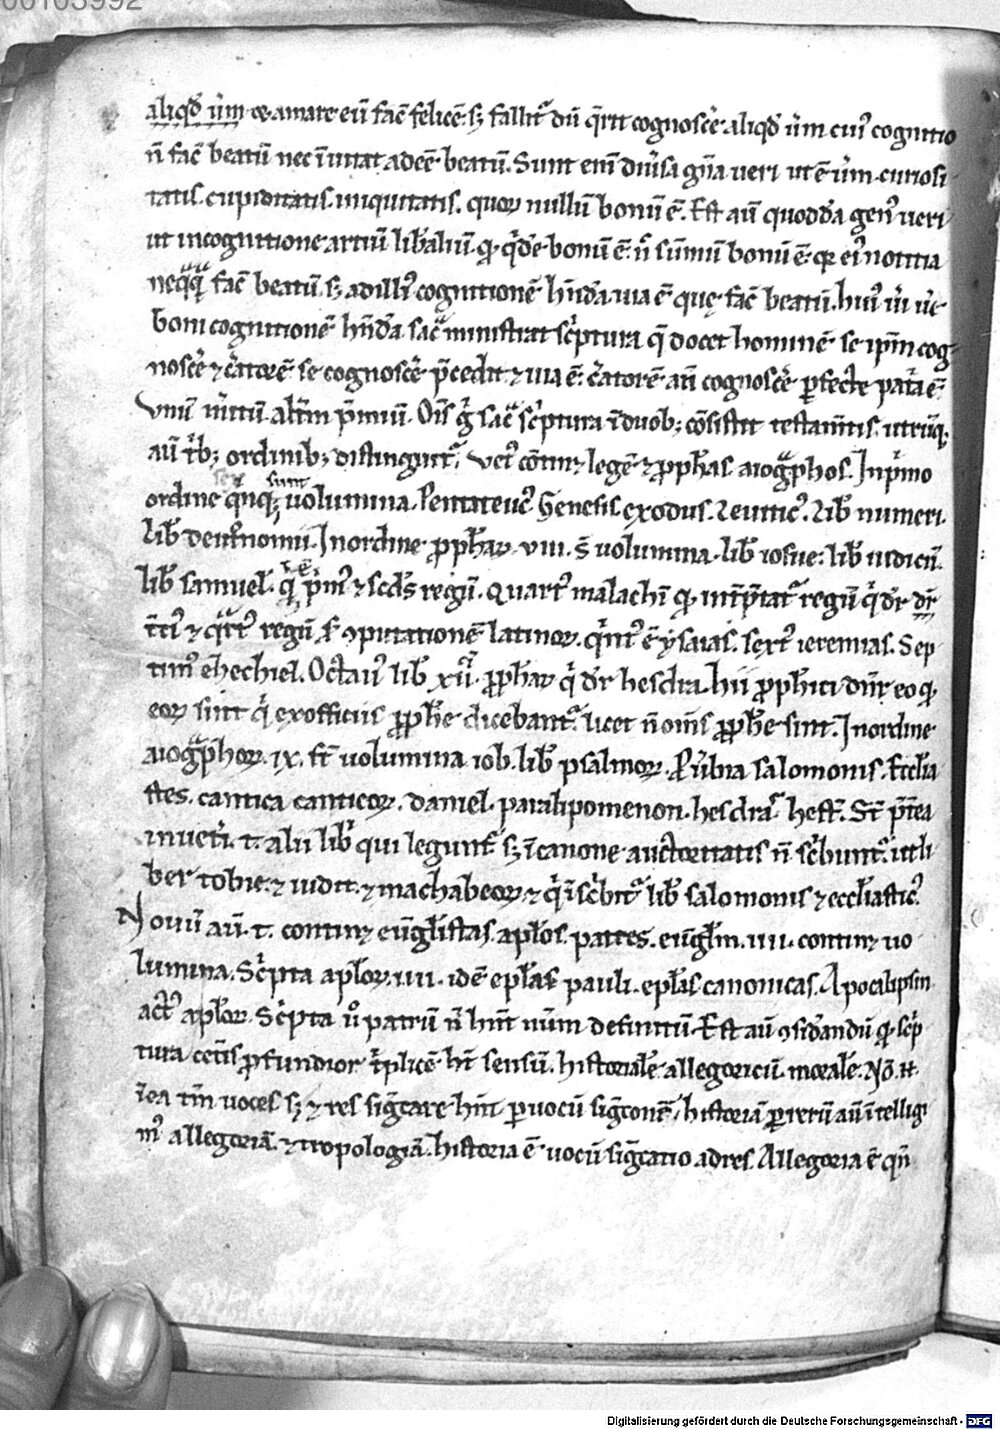 00103992
aliqd̄ uīm ce amare eū fac̄ felicē sȩ fallit᷑ dū q̄rit cognosc̄e aliqd̄ uīm cui᷒ cognitio
n̄ fac̄ beatū nec iuuat ad eē beatū. Sunt eni diūsa gn̄a ueri ut ē uīm curiosi
tatis. cupiditatis. iniquitatis. quoꝝ nullū bonū ē. Est aū quoddā gen᷒ ueri
ut in cognitione artiū lib̄aliū. ꝙ q̄dē bonū ē. n̄ sūmū bonū ē. qꝛ ei᷒ notitia
fac̄ beatū. sȩ ad illi᷒ cognitionē hn̄da. uia ē que fac̄ beatū. hui᷒ ū ūe
boni cognitionē hn̄da sac̄ ministrat sc̄ptura q̄ docet hominē se ip̄m cog
nosc̄e ⁊ c̄atorē se cognosc̄e p̄cedit ⁊ uia ē. c̄atorē aū cognosc̄e ꝑfecte pat̄a ē.
Vnū altm̄ p̄miū. Oīs g̊ sac̄ sc̄ptura ī duob; cōsistit testam̄tis. utrūq;
aū t̄b; ordinib; distinguit᷑. Vet᷒ cōtinȝ legē ⁊ ꝓph̄as aiogᵃphos. In p̄mo
ordine qͥnq; sunt uolumina. Pentateuc᷒ Genesis exodus. Leuitic᷒. Lib̄ numeri.
Lib̄ deut̄nomii. In ordine ꝓph̄aꝝ. viii. s̄ uolumina. lib̄ iosue. lib̄ iudicū.
lib̄ samuel. qͥ ē p̄m᷒ ⁊ scds̄ regū. Quart᷒ malachī ꝙ int̄p̄tat᷑ regū qͥ dr̄ dr̄
t̄ci᷒ ⁊ qᵃrt᷒ regū ꝯputationē latinoꝝ. qͥnt᷒ ē ysaias. sext᷒ ieremias. Sep
tim᷒ ehechiel. Octau᷒ lib̄ xii ꝓph̄aꝝ qͥ dr̄ hesdra. hii ꝓph̄ici dn̄r eo ꝙ
eoꝝ sint qͥ ex officiis ꝓph̄e dicebant᷑. licet n̄ oms̄ ꝓph̄e sint. In ordine
aiogᵃphoꝝ. ix. st̄ uolumina iob. lib̄ psalmoꝝ. Ꝓūbia salomonis. Eccl̄ia
stes. cantica canticoꝝ. daniel. paralipomenon. hesdra. hest̄. St̄ p̄tea
in uet̄i. t. alii lib̄ qui legunt᷑ sȩ ī canone auctoritatis n̄ sc̄bunt᷑. ut li
ber tobie. ⁊ iudit. ⁊ machabeoꝝ. ⁊ qͥ īsc̄bit᷑ lib̄ salomonis ⁊ eccl̄iastic᷒.
Nouū aū. t. continȝ eūgl̄istas. apl̄os. patres. eūgl̄m. iiii. continȝ uo
lumina. Sc̄pta apl̄oꝝ. iiii. idē epl̄as pauli. epl̄as canonicas. Apocalipsin
act᷒ apl̄oꝝ. Sc̄pta ů patrū n̄ hn̄t num̄ definitū. Est aū ꝯsid̄andū ꝙ sc̄p
tura cet̄is ꝓfundior t̄plicē ht̄ sensū. historialē. allegoricū. moralē. Nō
īea tm̄ uoces sȩ ⁊ res sigͥcare hn̄t. ꝑ uocū sigͥconē. historiā. ꝑ rerū aū ītelligi
m᷒ allegoriā. ⁊ tropologiā. historia ē uocū sigͥcatio ad res. Allegoria ē qn̄
Digitalisierung gefördert durch die Deutsche Forschungsgemeinschaft - DFG